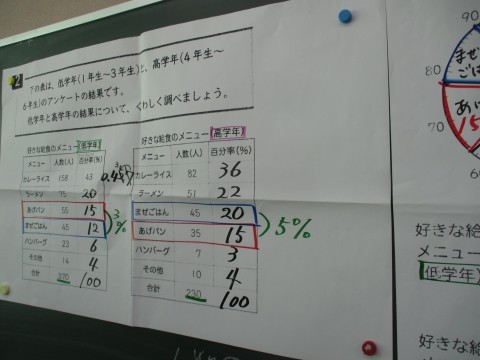 2
下の表は、低学年(1年生~3年生)と、高学年(4年生~
6年生)のアンケートの結果です。
低学年と高学年の結果について、くわしく調べましょう。
好きな給食のメニュー(低学年)
メニュー 人数(人) 百分率(%)
カレーライス 158 43
ラーメン 75 20
あげパン 55 15
まぜごはん 45 12
ハンバーグ 22 6
その他 14 4
合計 370 100
3%
好きな給食のメニュー(高学年)
メニュー 人数(人) 百分率(%)
カレーライス 82 36
ラーメン 51 22
まぜごはん 45 20
あげパン 35 15
ハンバーグ 7 3
その他 10 4
合計 230 100
5%
90
80
70
60
まぜ
ごは
あげ
15
好きな給
メニュー
(低学年)
好きな給
メニュ